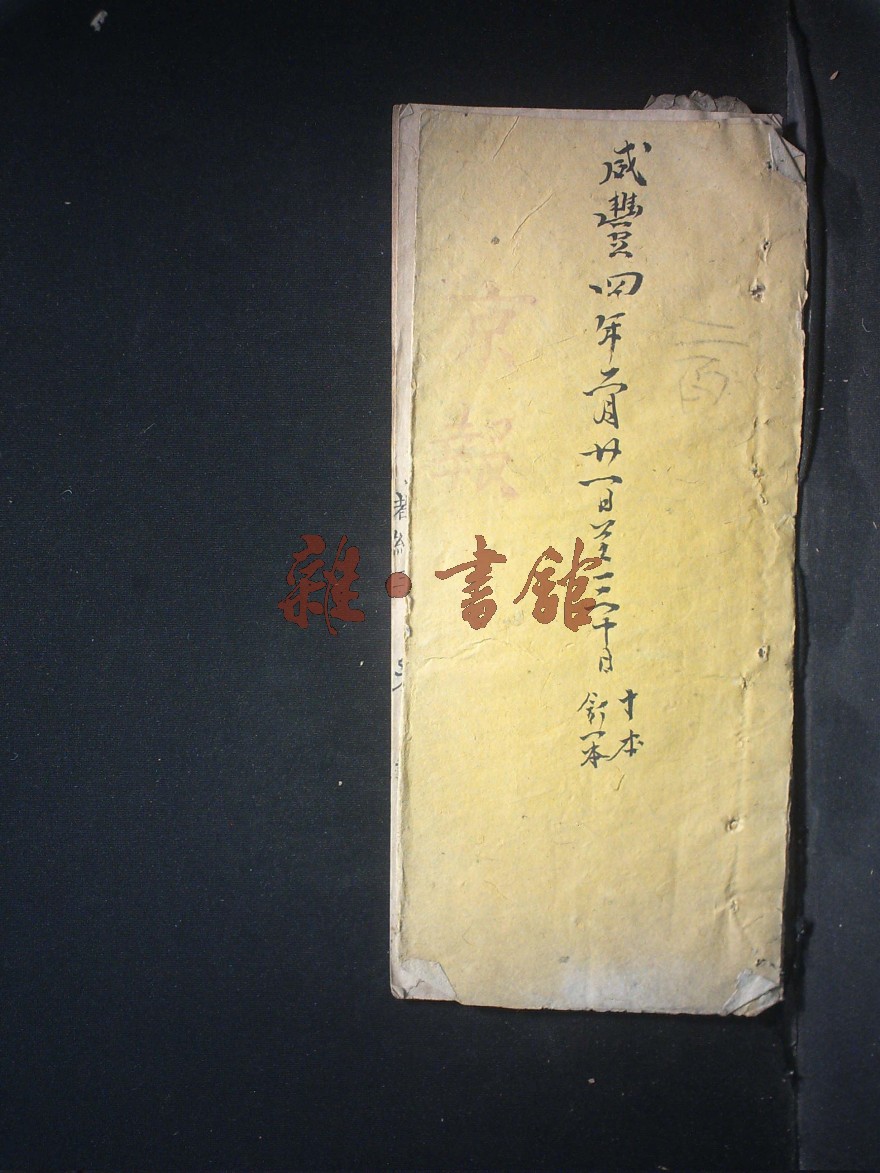 咸豐四年二月廿一日至三十日
十本
訂一本
京報
雜·書館